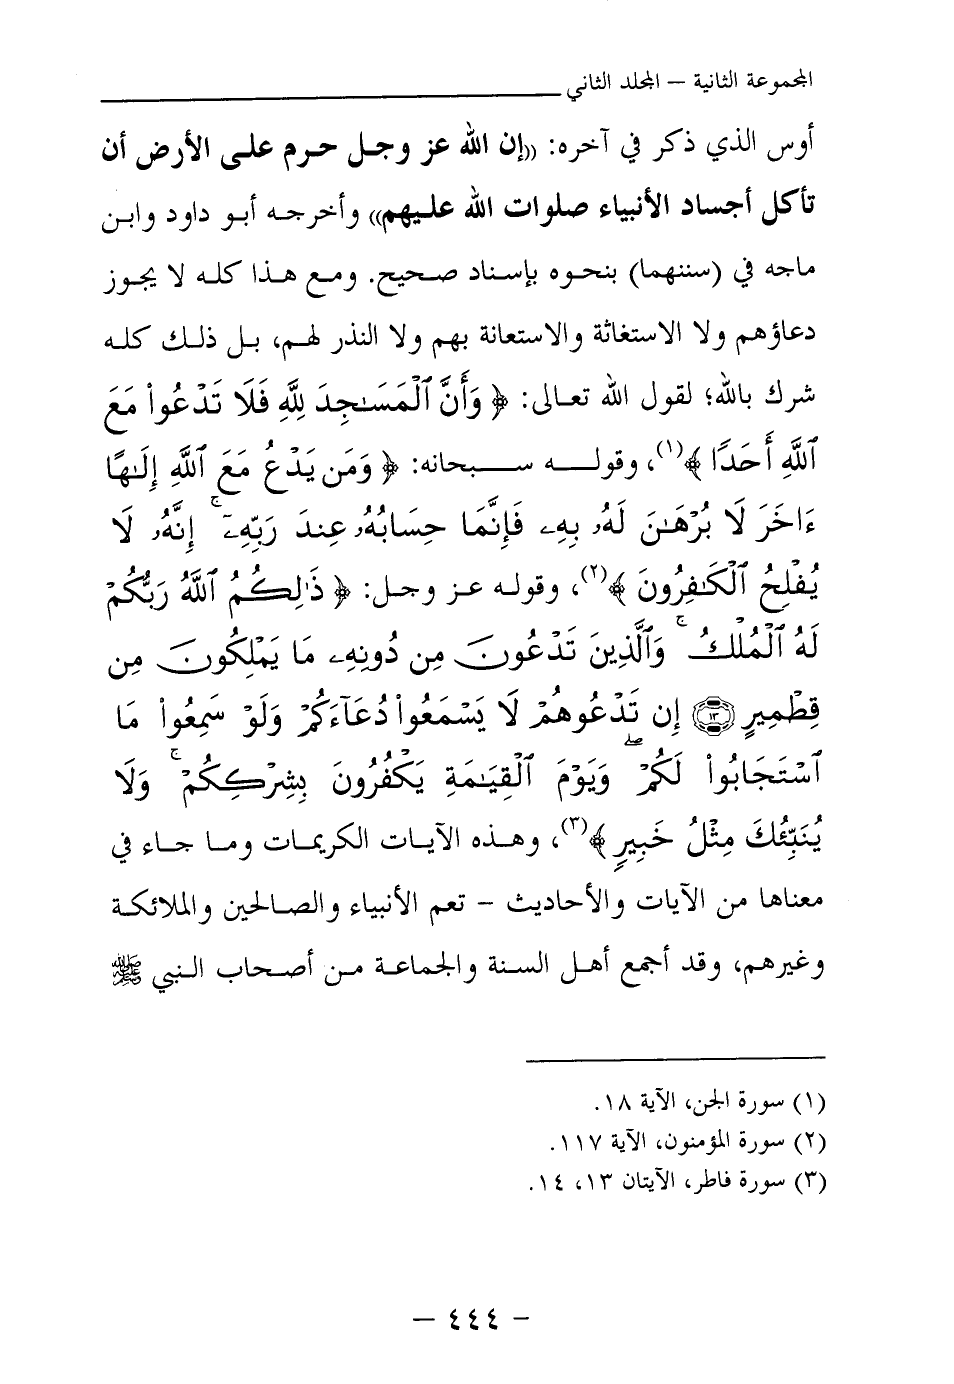 المجموعة الثانية – المجلد الثاني
أوس الذي ذكر في آخره: ((إن الله عز وجل حرم على الأرض أن
تأكل أجساد الأنبياء صلوات الله عليهم)) وأخرجه أبو داود وابن
ماجه في (سننهما) بنحوه بإسناد صحيح. ومع هذا كله لا يجوز
دعاؤهم ولا الاستغاثة والاستعانة بهم ولا النذر لهم، بل ذلك كله
شرك بالله؛ لقول الله تعالى: ﴿ وَأَنَّ ٱلْمَسَٰجِدَ لِلَّهِ فَلَا تَدْعُوا۟ مَعَ
ٱللَّهِ أَحَدًا ﴾(١)، وقوله سبحانه: ﴿ وَمَن يَدْعُ مَعَ ٱللَّهِ إِلَٰهًا
ءَاخَرَ لَا بُرْهَٰنَ لَهُۥ بِهِۦ فَإِنَّمَا حِسَابُهُۥ عِندَ رَبِّهِۦٓ ۚ إِنَّهُۥ لَا
يُفْلِحُ ٱلْكَٰفِرُونَ ﴾(٢)، وقوله عز وجل: ﴿ ذَٰلِكُمُ ٱللَّهُ رَبُّكُمْ
لَهُ ٱلْمُلْكُ ۚ وَٱلَّذِينَ تَدْعُونَ مِن دُونِهِۦ مَا يَمْلِكُونَ مِن
قِطْمِيرٍ ١٣ إِن تَدْعُوهُمْ لَا يَسْمَعُوا۟ دُعَآءَكُمْ وَلَوْ سَمِعُوا۟ مَا
ٱسْتَجَابُوا۟ لَكُمْ ۖ وَيَوْمَ ٱلْقِيَٰمَةِ يَكْفُرُونَ بِشِرْكِكُمْ ۚ وَلَا
يُنَبِّئُكَ مِثْلُ خَبِيرٍ ﴾(٣)، وهذه الآيات الكريمات وما جاء في
معناها من الآيات والأحاديث – تعم الأنبياء والصالحين والملائكة
وغيرهم، وقد أجمع أهل السنة والجماعة من أصحاب النبي ﷺ
(١) سورة الجن، الآية ١٨.
(٢) سورة المؤمنون، الآية ١١٧.
(٣) سورة فاطر، الآيتان ١٣، ١٤.
– ٤٤٤ –